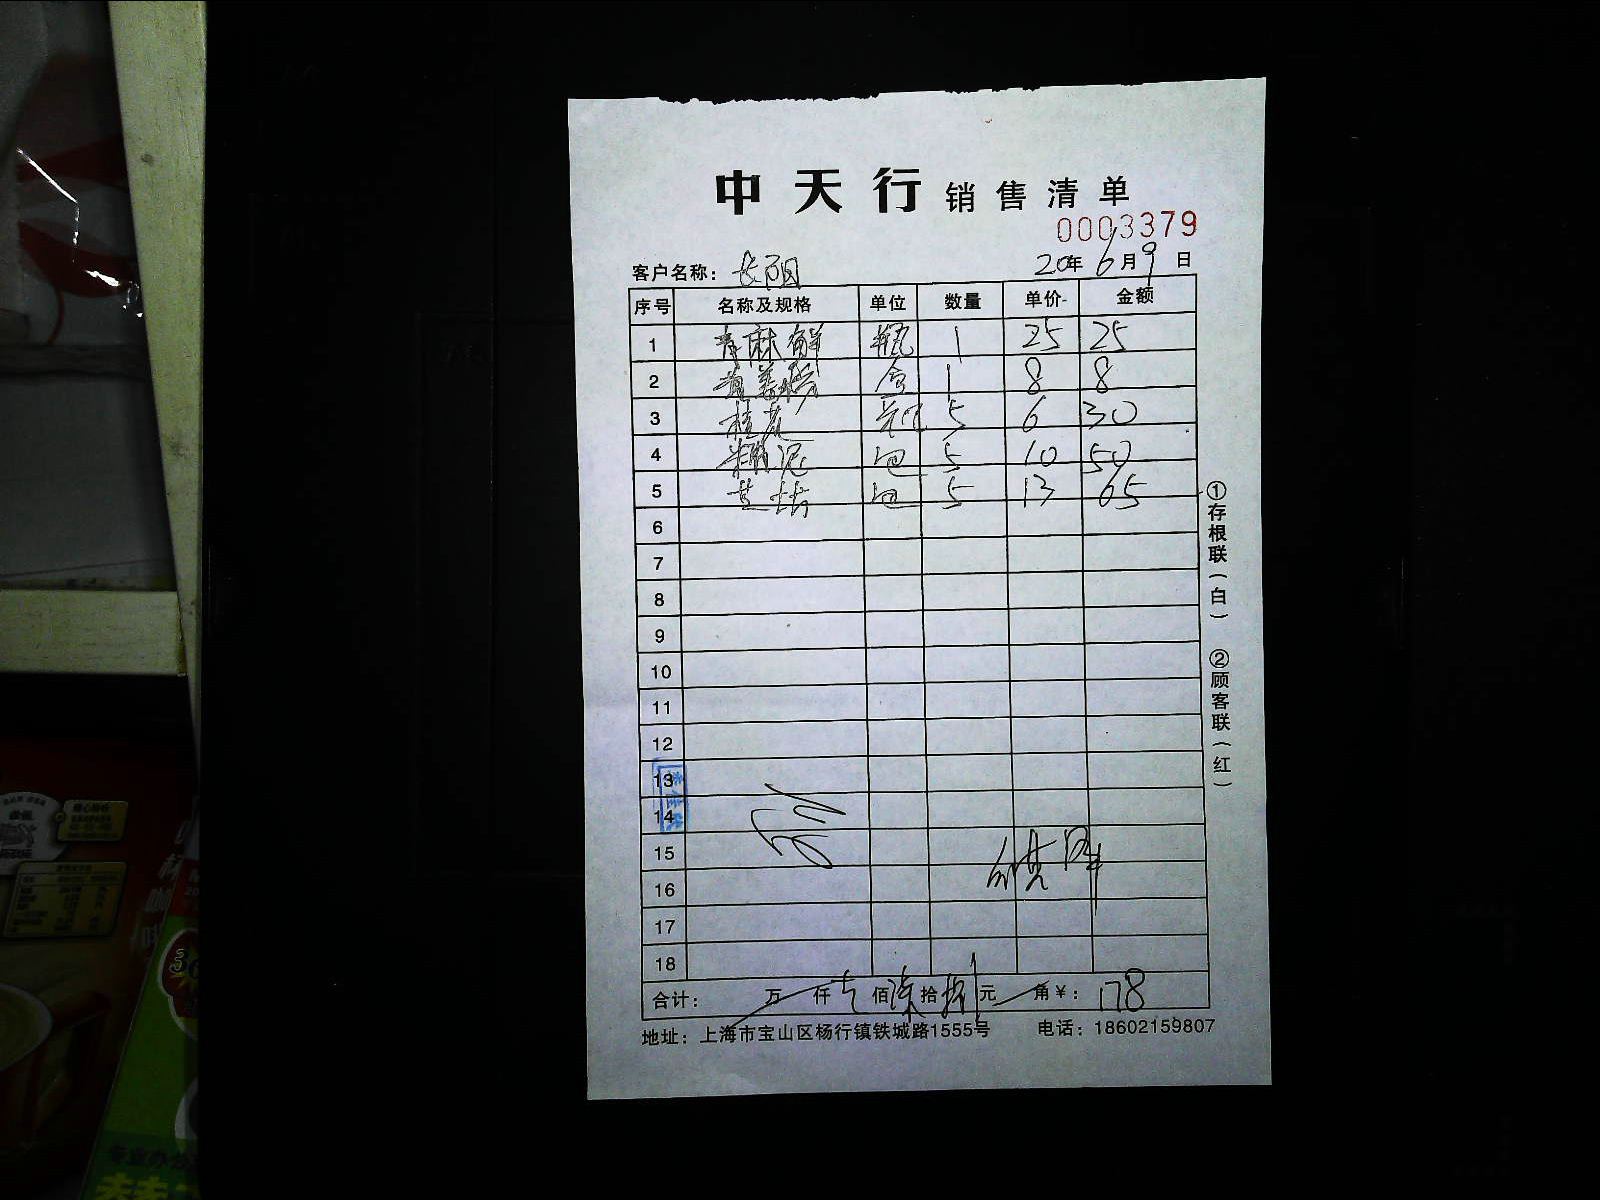 中天行 销售清单
0003379
客户名称： 长阳 20年 6月 9日
序号 名称及规格 单位 数量 单价 金额
1 青麻鲜 瓶 1 25 25
2 盒 1 8 8
3 桂花 瓶 5 6 30
4 包 5 10 50
5 包 5 13 65
6
7
8
9
10
11
12
13
14
15
16
17
18
合计： 万 仟 佰 拾 元 角 ￥： 178
地址：上海市宝山区杨行镇铁城路1555号 电话：18602159807
①存根联（白） ②顾客联（红）